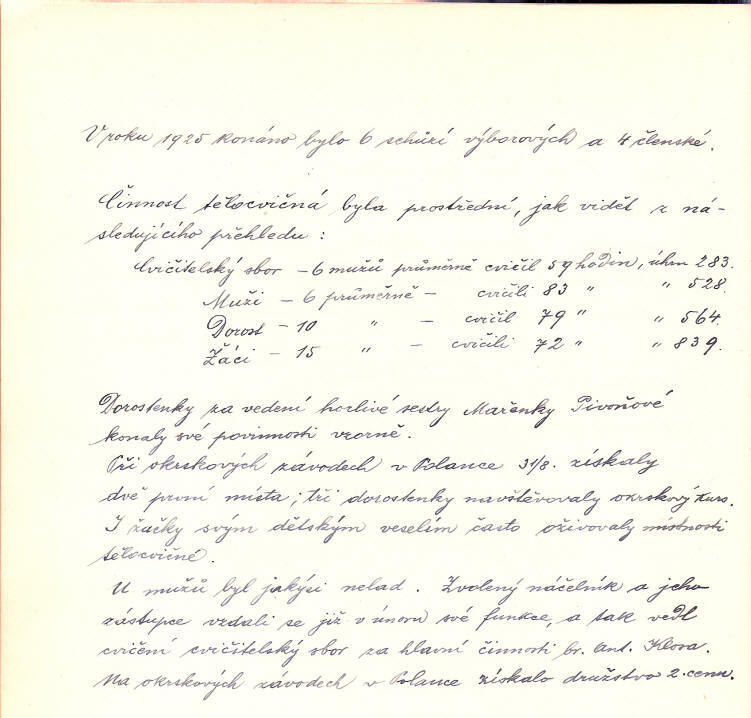 V roku 1925 konáno bylo 6 schůzí výborových a 4 členské.
Činnost tělocvičná byla prostřední, jak vidět z ná-
sledujícího přehledu:
Cvičitelský sbor – 6 mužů průměrně cvičil 59 hodin, úhrn 283.
Muži – 6 průměrně – cvičili 83 " " 528.
Dorost – 10 " – cvičil 79 " " 564.
Žáci – 15 " – cvičili 72 " " 839.
Dorostenky za vedení horlivé sestry Mařenky Pivoňové
konaly své povinnosti vzorně.
Při okrskových závodech v Polance 31/8. získaly
dvě první místa; tři dorostenky navštěvovaly okrskový kurs.
I žačky svým dětským veselím často oživovaly místnosti
tělocvičné.
U mužů byl jakýsi nelad. Zvolený náčelník a jeho
zástupce vzdali se již v únoru své funkce, a tak vedl
cvičení cvičitelský sbor za hlavní činnosti br. Ant. Klosa.
Na okrskových závodech v Polance získalo družstvo 2. cenu.